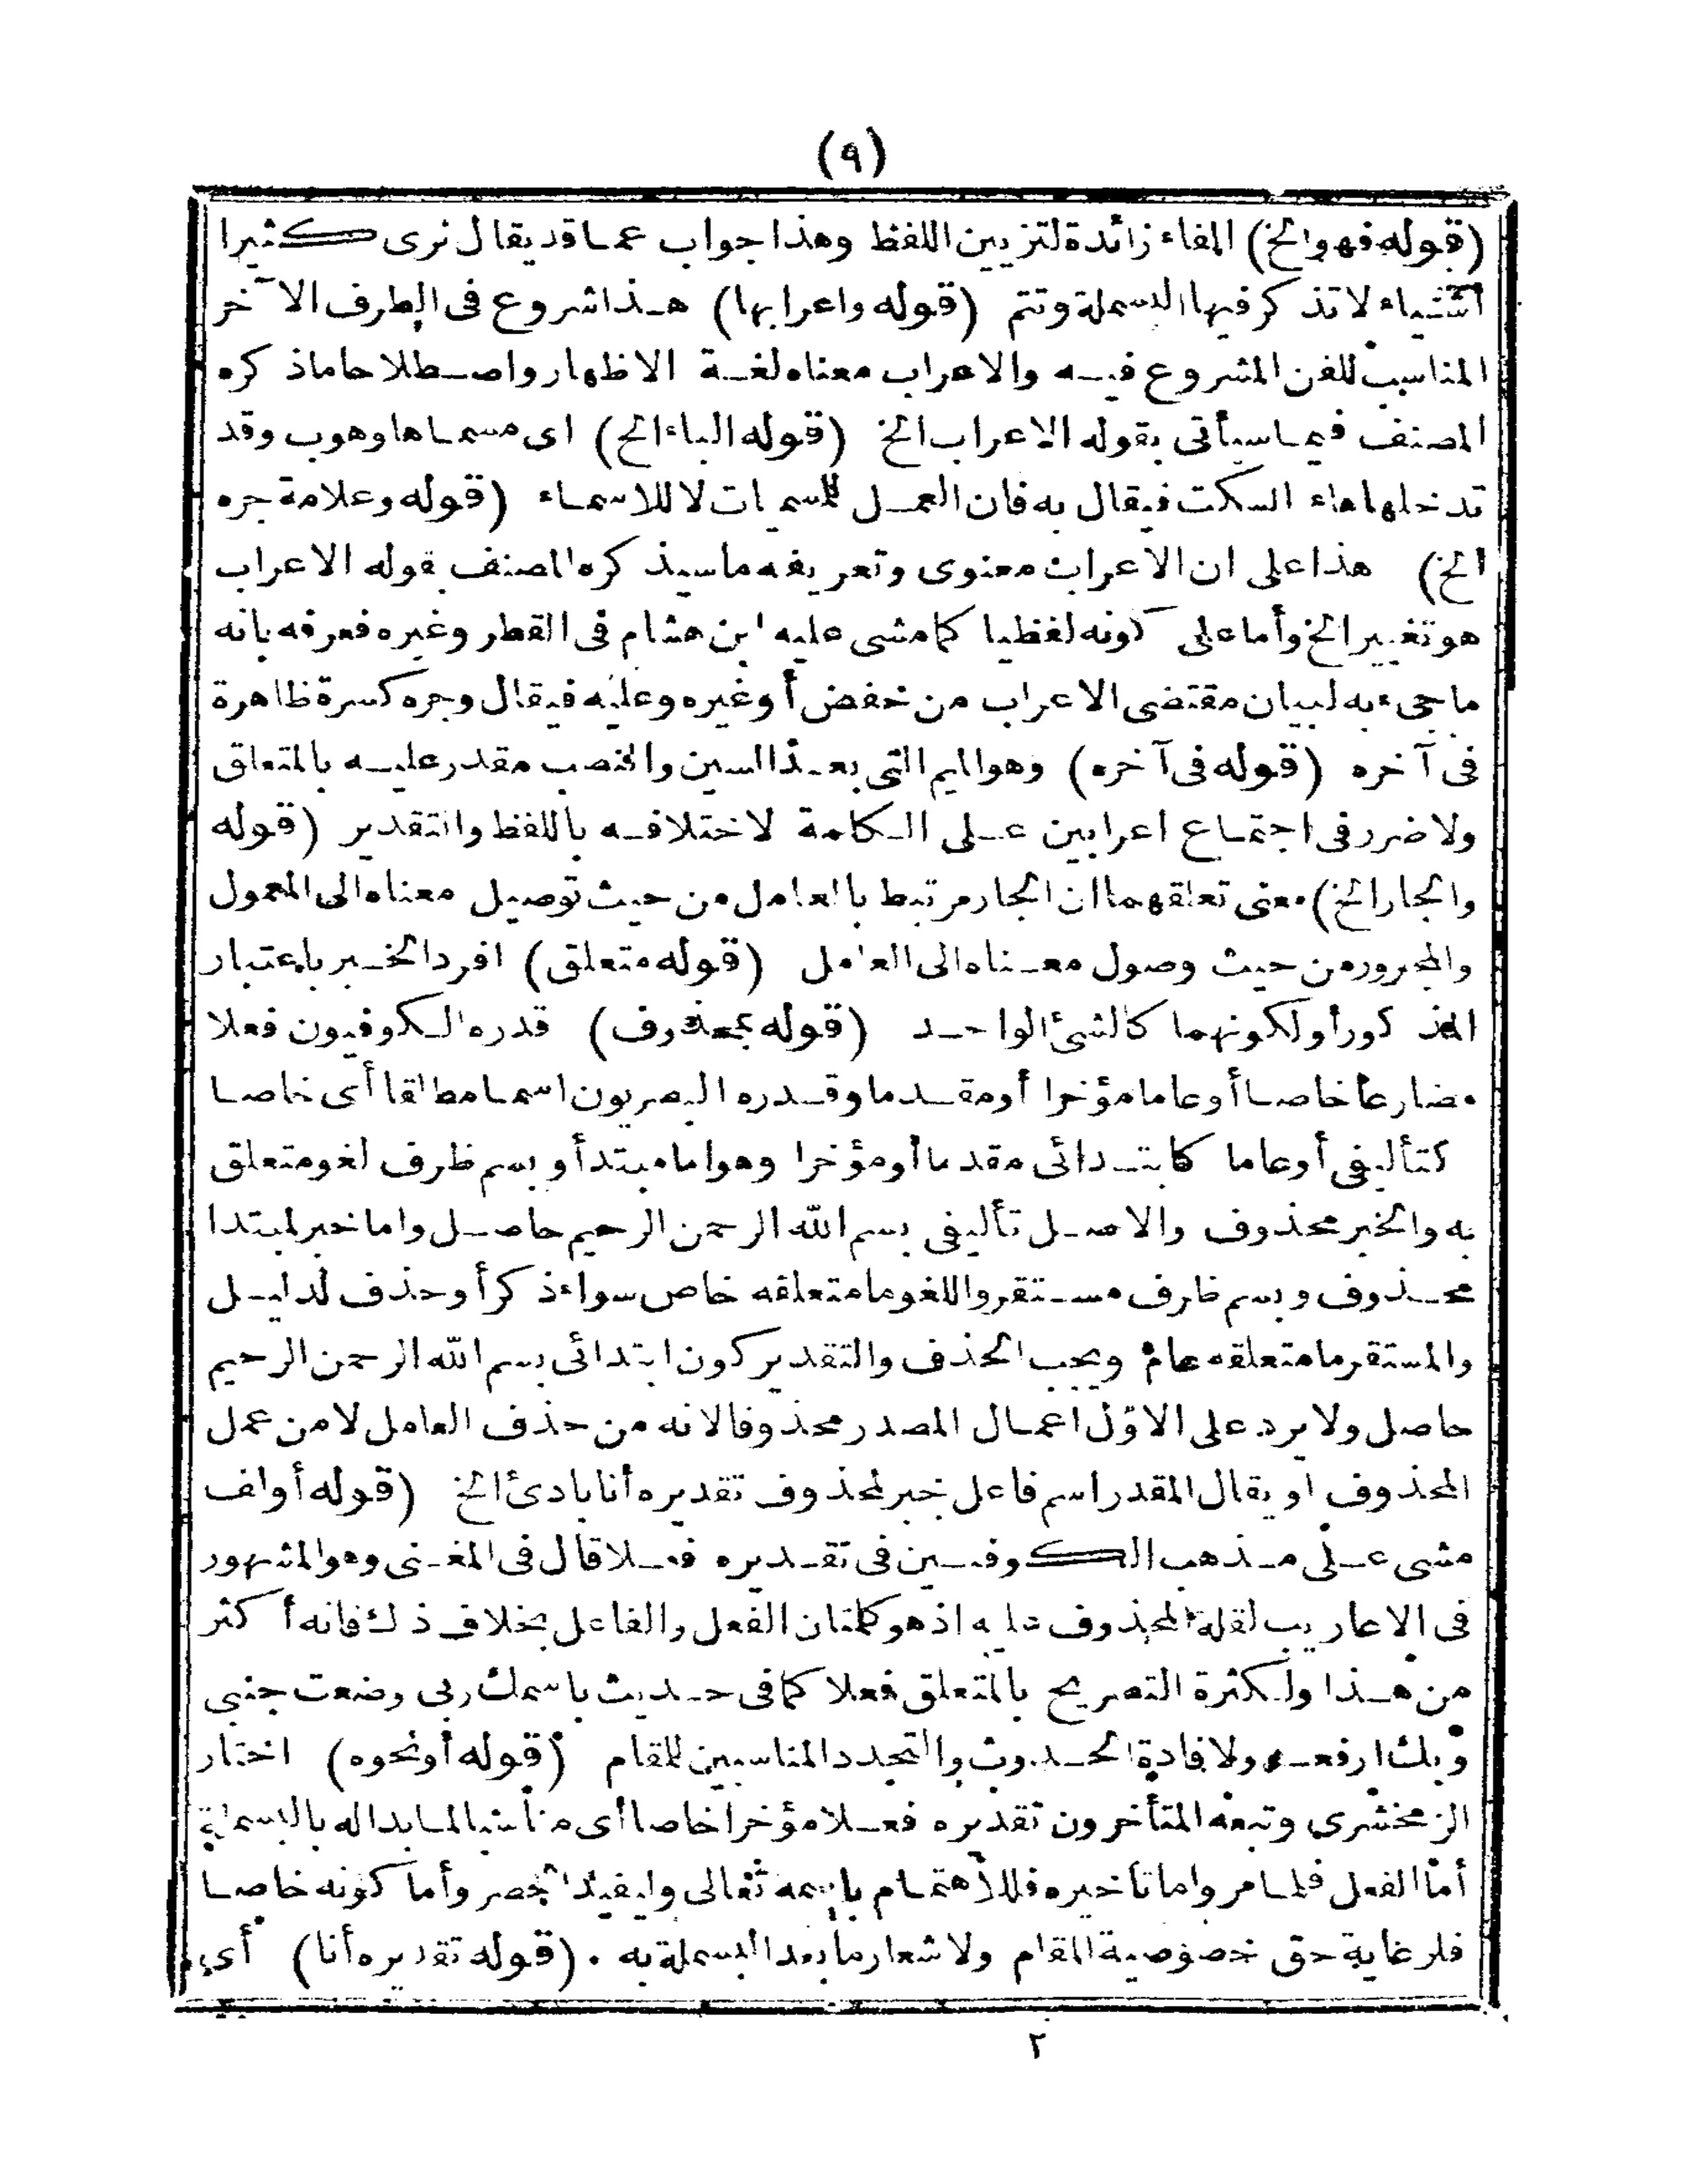 (٩)
(قوله فهو الخ) الفاء زائدة لتزيين اللفظ وهذا جواب عما قد يقال نرى كثيرا
أشياء لا تذكر فيها البسملة وتتم (قوله واعرابها) هذا شروع فى الطرف الآخر
المناسب للفن المشروع فيه والاعراب معناه لغة الاظهار واصطلاحا ماذكره
المصنف فيما سيأتى بقوله الاعراب الخ (قوله الباء الخ) اى مسماها وهو ب وقد
تدخلها هاء السكت فيقال به فان العمل للمسميات لا للاسماء (قوله وعلامة جره
الخ) هذا على ان الاعراب معنوى وتعريفه ما سيذكره المصنف بقوله الاعراب
هو تغيير الخ وأما على كونه لفظيا كما مشى عليه ابن هشام فى القطر وغيره فعرفه بانه
ما جىء به لبيان مقتضى الاعراب من خفض أو غيره وعليه فيقال وجره كسرة ظاهرة
فى آخره (قوله فى آخره) وهو الميم التى بعد السين والنصب مقدر عليه بالمتعلق
ولا ضرر فى اجتماع اعرابين على الكلمة لاختلافه باللفظ والتقدير (قوله
والجار الخ) معنى تعلقهما ان الجار مرتبط بالعامل من حيث توصيل معناه الى المعمول
والمجرور من حيث وصول معناه الى العامل (قوله متعلق) افرد الخبر باعتبار
المذكور أو لكونهما كالشئ الواحد (قوله بمحذوف) قدره الكوفيون فعلا
مضارعا خاصا أو عاما مؤخرا أو مقدما وقدره البصريون اسما مطلقا أى خاصا
كتأليفى أو عاما كابتدائى مقدما أو مؤخرا وهو اما مبتدأ وبسم ظرف لغو متعلق
به والخبر محذوف والاصل تأليفى بسم الله الرحمن الرحيم حاصل واما خبر لمبتدا
محذوف وبسم ظرف مستقر واللغو ما متعلقه خاص سواء ذكر أو حذف لدليل
والمستقر ما متعلقه عام ويجب الحذف والتقدير كون ابتدائى بسم الله الرحمن الرحيم
حاصل ولا يرد على الاول اعمال المصدر محذوفا لانه من حذف العامل لا من عمل
المحذوف او يقال المقدر اسم فاعل خبر لمحذوف تقديره أنا بادئ الخ (قوله أو اف
مشى على مذهب الكوفيين فى تقديره فعلا قال فى المغنى وهو المشهور
فى الاعاريب لقلة المحذوف عليه اذ هو كلمتان الفعل والفاعل بخلاف ذلك فانه أكثر
من هذا ولكثرة التصريح بالمتعلق فعلا كما فى حديث باسمك ربى وضعت جنبى
وبك ارفعه ولافادة الحدوث والتجدد المناسبين للمقام (قوله أو نحوه) اختار
الزمخشرى وتبعه المتأخرون تقديره فعلا مؤخرا خاصا أى مناسبا لما بدا له بالبسملة
أما الفعل فلما مر واما تأخيره فللاهتمام باسمه تعالى وليفيد الحصر وأما كونه خاصا
فلرعاية حق خصوصية المقام ولاشعار ما بعد البسملة به. (قوله تقديره أنا) أى
٢